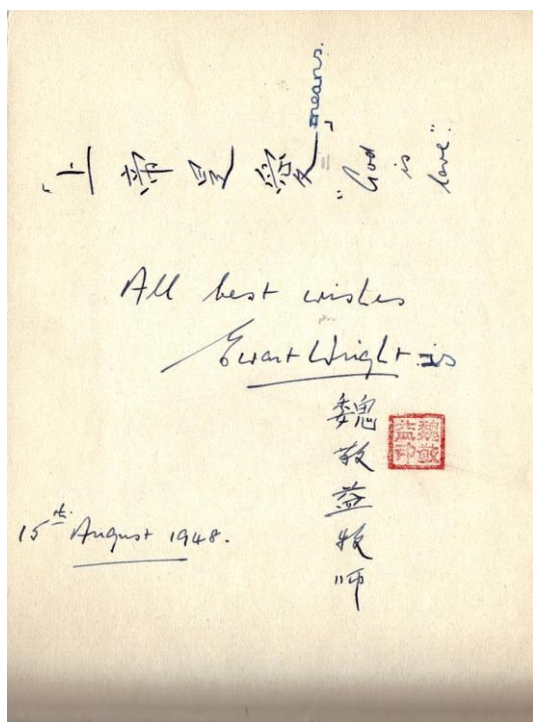 "上帝是愛" means
"God
is
love".
All best wishes
Ewart Wright is
魏敬益牧師
魏敬
益印
15th August 1948.